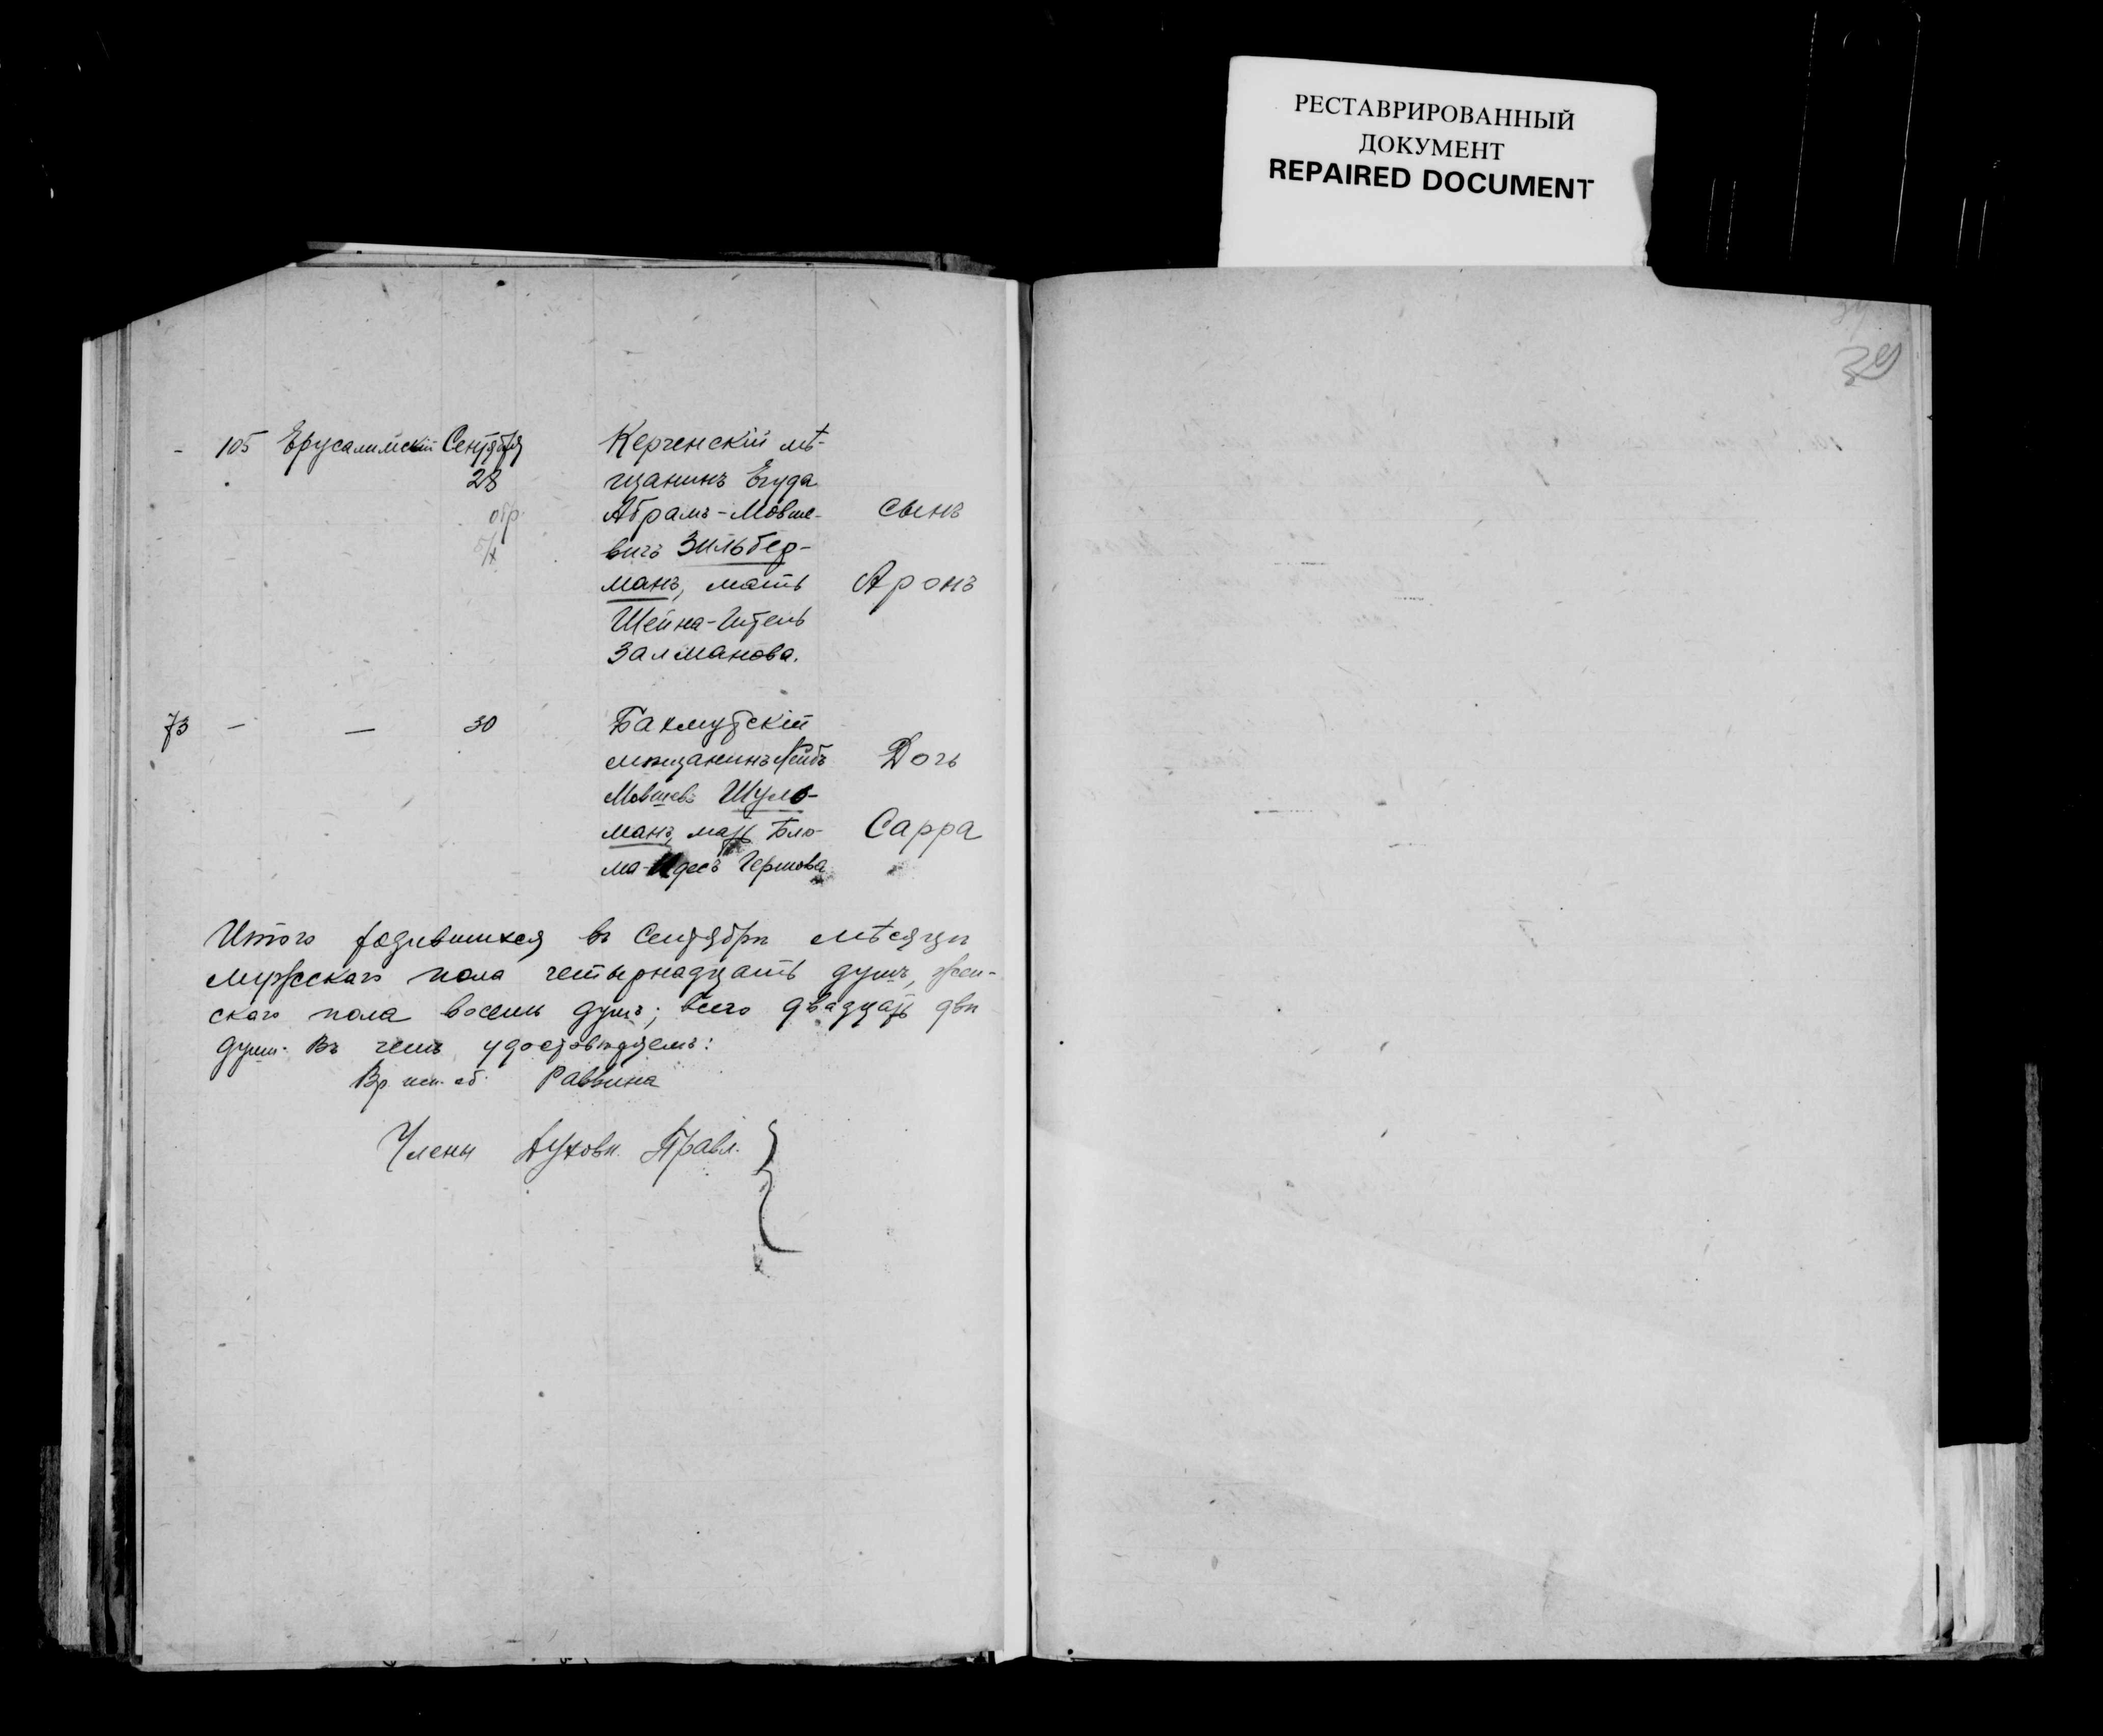 РЕСТАВРИРОВАННЫЙ
ДОКУМЕНТ
REPAIRED DOCUMENT
39
- 105 Ерусалимскій Сентября
28
обр.
5/X
Керченскій мѣ-
щанинъ Егуда
Абрамъ-Мовше-
вичъ Зильбер-
манъ, мать
Шейна-Итель
Залманова.
сынъ
Аронъ
73 - - 30
Бахмутскій
мѣщанинъ Лейбъ
Мовшевъ Шуль-
манъ, мать Блю-
ма-Идесъ Гершова
Дочь
Сарра
Итого родившихся въ Сентябрѣ мѣсяцѣ
мужскаго пола четырнадцать душъ, жен-
скаго пола восемь душъ; всего двадцать двѣ
души. Въ чемъ удостовѣряемъ:
Вр. исп. об. Раввина
Члены Духовн. Правл.